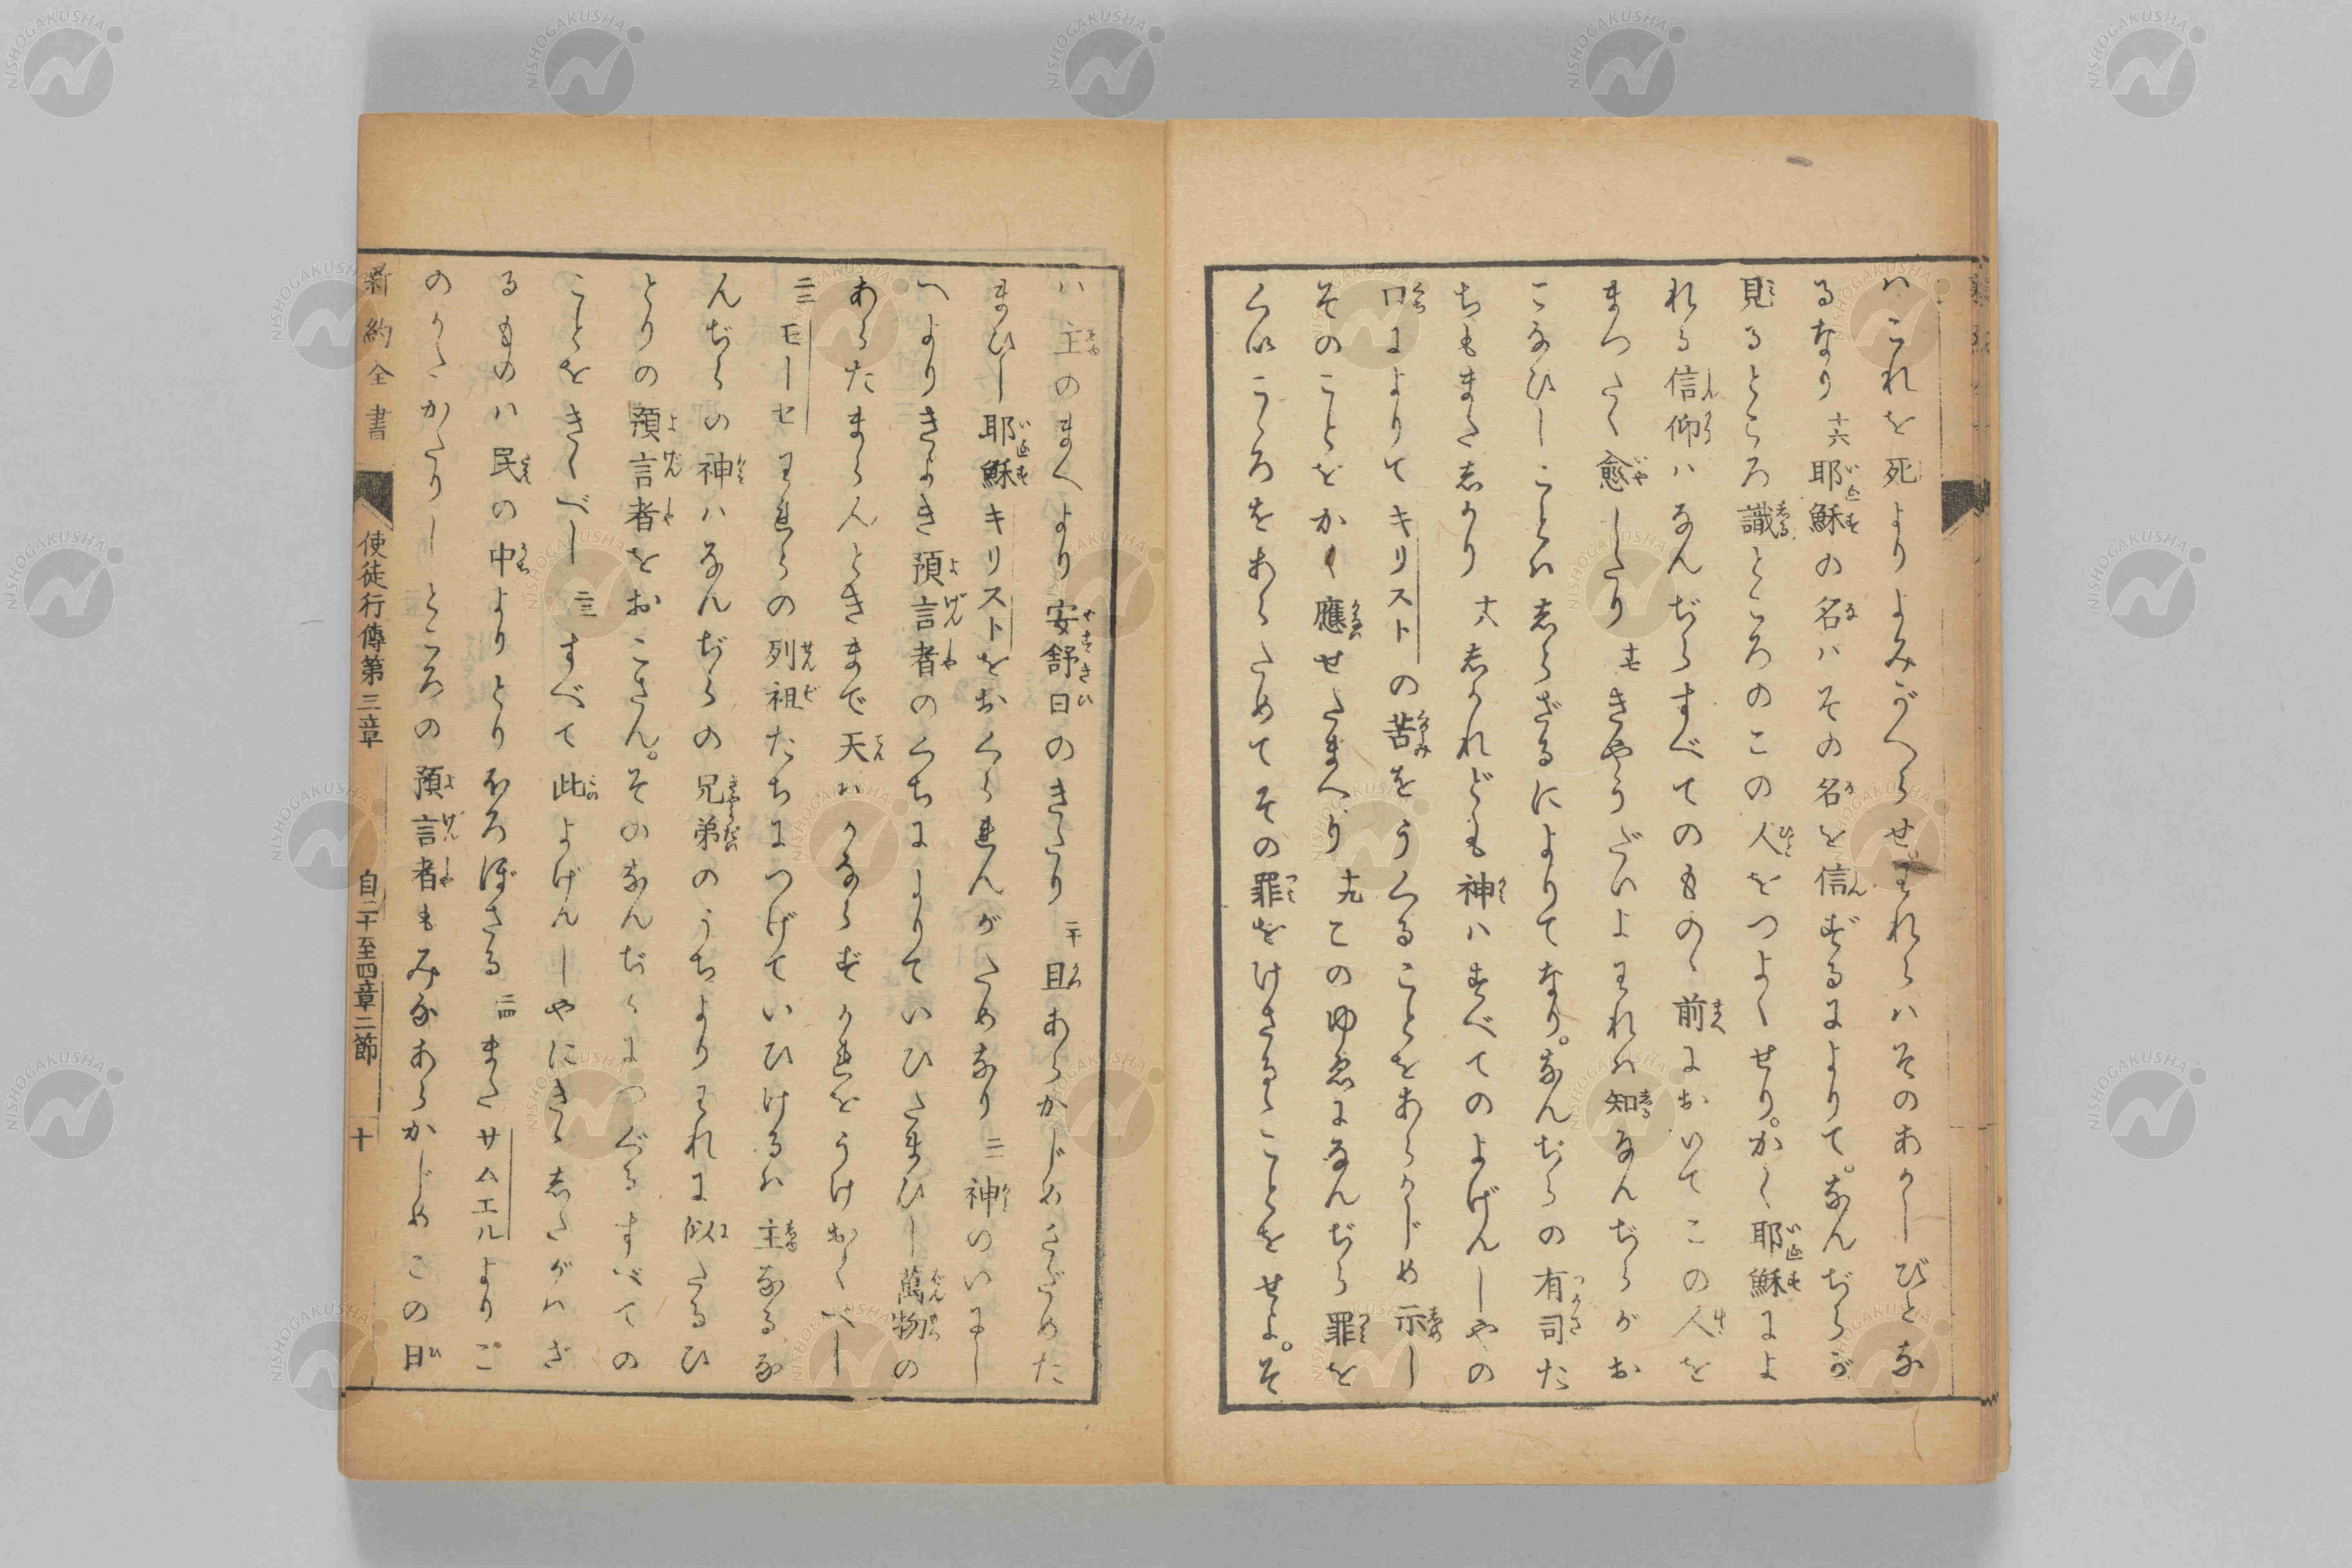 ハこれを死よりよみがへらせ。われらハそのあかしびとな
るなり 十六 耶穌の名ハその名を信ずるによりて。なんぢらが
見るところ識ところのこの人をつよくせり。かく耶穌によ
れる信仰ハなんぢらすべてのものゝ前においてこの人を
まつたく愈したり 十七 きやうだいよわれハ知なんぢらがお
こなひしことハしらざるによりてなり。なんぢらの有司た
ちもまたしかり 十八 しかれども神ハすべてのよげんしやの
口によりてキリストの苦をうくることをあらかじめ示し
そのことをかく應せたまへり 十九 このゆゑになんぢら罪を
くいこゝろをあらためてその罪をけさるゝことをせよ。そ
ハ主のまへより安舒日のきたり 二十 且あらかじめさだめた
まひし耶穌キリストをおくられんがためなり 二一 神のいにし
へよりきよき預言者のくちによりていひたまひし萬物の
あらたまらんときまで天ハかならずかれをうけおくべし
二二 モーセわれらの列祖たちにつげていひけるハ主なるな
んぢらの神ハなんぢらの兄弟のうちよりわれに似たるひ
とりの預言者をおこさん。そのなんぢらにつぐるすべての
ことをきくべし 二三 すべて此よげんしやにきゝしたがハざ
るものハ民の中よりとりほろぼさる 二四 またサムエルよりこ
のかたかたりしところの預言者もみなあらかじめこの日
新約全書 使徒行傳第三章 自二十至四章二節 十
NISHOGAKUSHA